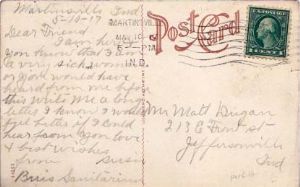 Martinsville Ind
5-10-17
Dear Friend
I am here
you know that I am
a very sick woman
or you would have
heard from me before
this write me a long
letter I know I would
feel better if I could
hear from you love
& best wishes
from Susie
Sanitarium
MARTINSVILLE
MAY 10
PM
IND.
Post Card
Mr Matt Dugan
213 E Front st
Jeffersonville
Ind